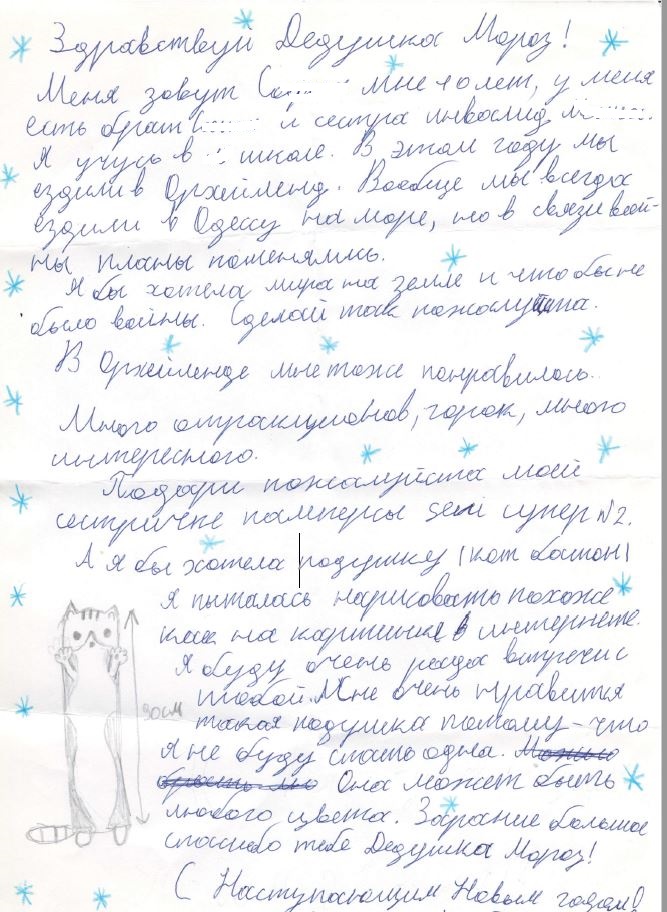 Здравствуй Дедушка Мороз!
Меня зовут С мне 10 лет, у меня
есть брат и сестра инвалид
Я учусь в школе. В этом году мы
ездили в Орхейленд. Вообще мы всегда
ездили в Одессу на море, но в связи вой-
ны планы поменялись.
Я бы хотела мира на земле и что бы не
было войны. Сделай так пожалуйста.
В Орхейленде мне тоже понравилось.
Много аттракционов, горок, много
интересного.
Подари пожалуйста моей
сестричке памперсы seni супер №2.
А я бы хотела подушку (кот батон)
Я пыталась нарисовать похоже
как на картинке в интернете.
Я буду очень рада встречи с
тобой. Мне очень нравится
90см
такая подушка потому-что
Я не буду спать одна.
Она может быть
любого цвета. Зарание большое
спасибо тебе Дедушка Мороз!
С Наступающим Новым годом!